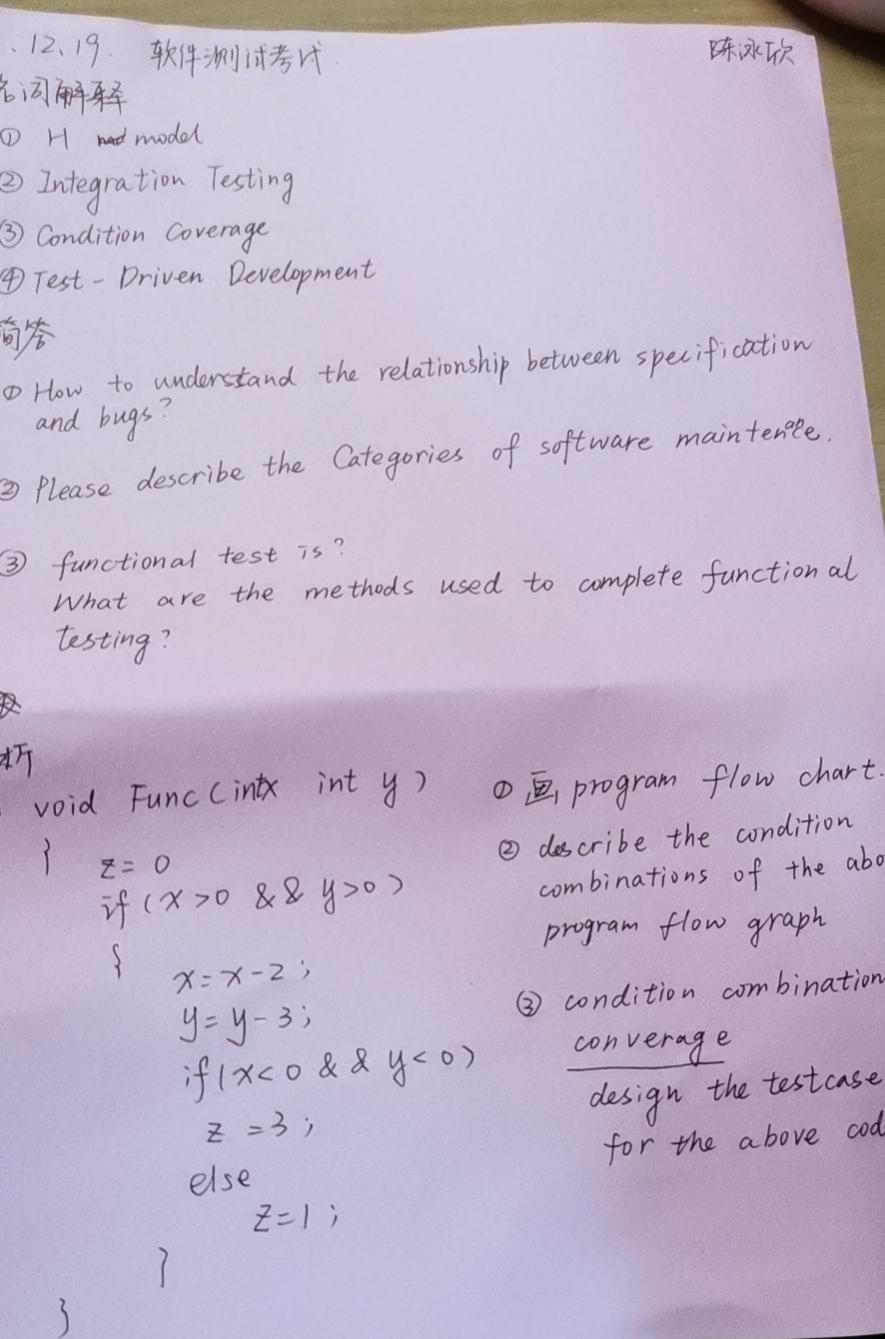 .12.19. 软件测试考试 陈泳欣
名词解释
① H model
② Integration Testing
③ Condition Coverage
④ Test-Driven Development
简答
① How to understand the relationship between specification
and bugs?
② Please describe the Categories of software maintenance.
③ functional test is?
What are the methods used to complete functional
testing?
析
void Func(intx int y)
}
z=0
if(x>0 && y>0)
{
x=x-2;
y=y-3;
if(x<0 && y<0)
z=3;
else
z=1;
}
}
① 画 program flow chart.
② describe the condition
combinations of the abo
program flow graph
③ condition combination
converage
design the testcase
for the above cod